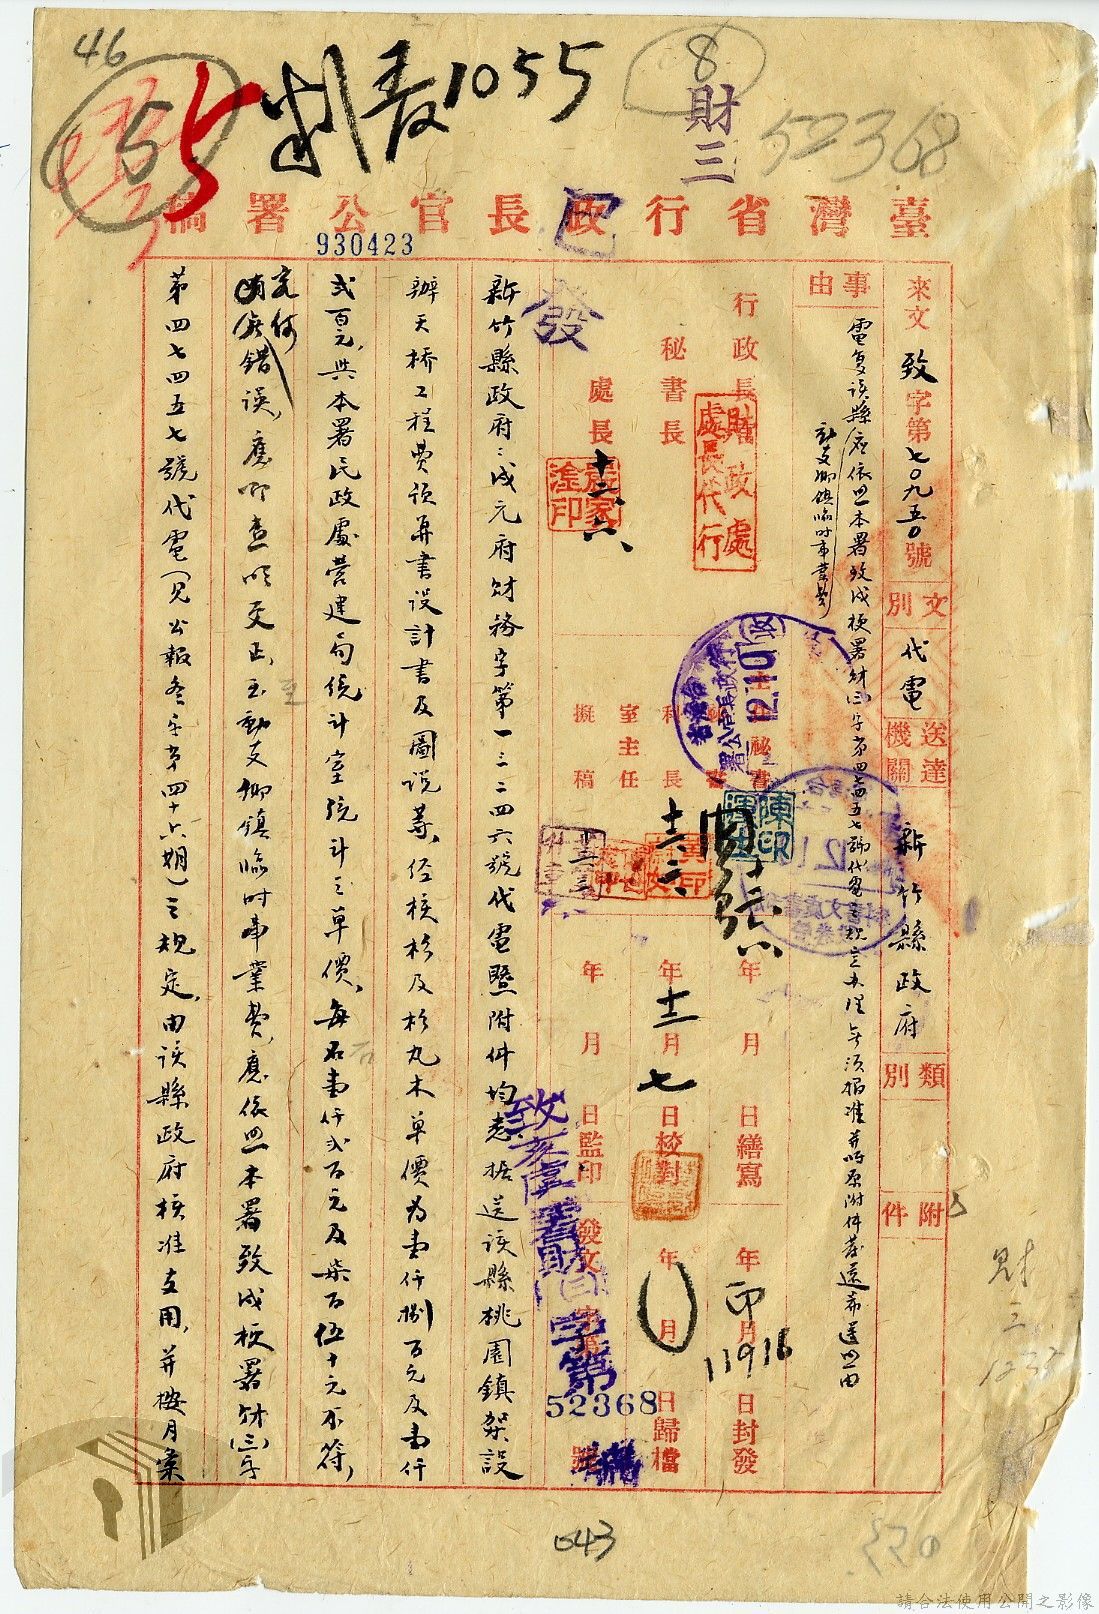 46
55
判發1055
8
財三
52368
臺灣省行政長官公署稿
930423
已
發
來文 致字第七〇九五〇號
文別
代電
送達機關
新竹縣政府
類別
附件
事由
電复該縣應依照本署致戌梗署財㈢字第四七四五七號代電之規定办理
動支鄉鎮臨時事業費
無須報准并將原附件發還希遵照由
行政長官
秘書長
處長
財政處處長代行
主任秘書
秘書
科長
室主任
擬稿
十二月七
年 月 日繕寫
年 月 日校對
年 月 日監印
年 月 日封發
年 月 日歸檔
發文
印
11916
致亥 署財㈢字第
52368
號
新竹縣政府:戌元府財務字第一三二四六號代電暨附件均悉。据送該縣桃園鎮架設
辦天橋工程費預算書設計書及圖說等,經核杉及杉丸木單價為壹仟捌百元及壹仟
弍百元,與本署民政處營建局統計室統計之單價,每石壹仟弍百元及柒百伍十元不符,
究何
有無錯誤,應即查明更正,至動支鄉鎮臨時事業費,應依照本署致戌梗署財㈢字
第四七四五七號代電(見公報冬字第四十六期)之規定,由該縣政府核准支用,并按月彙
043
財三
請合法使用公開之影像